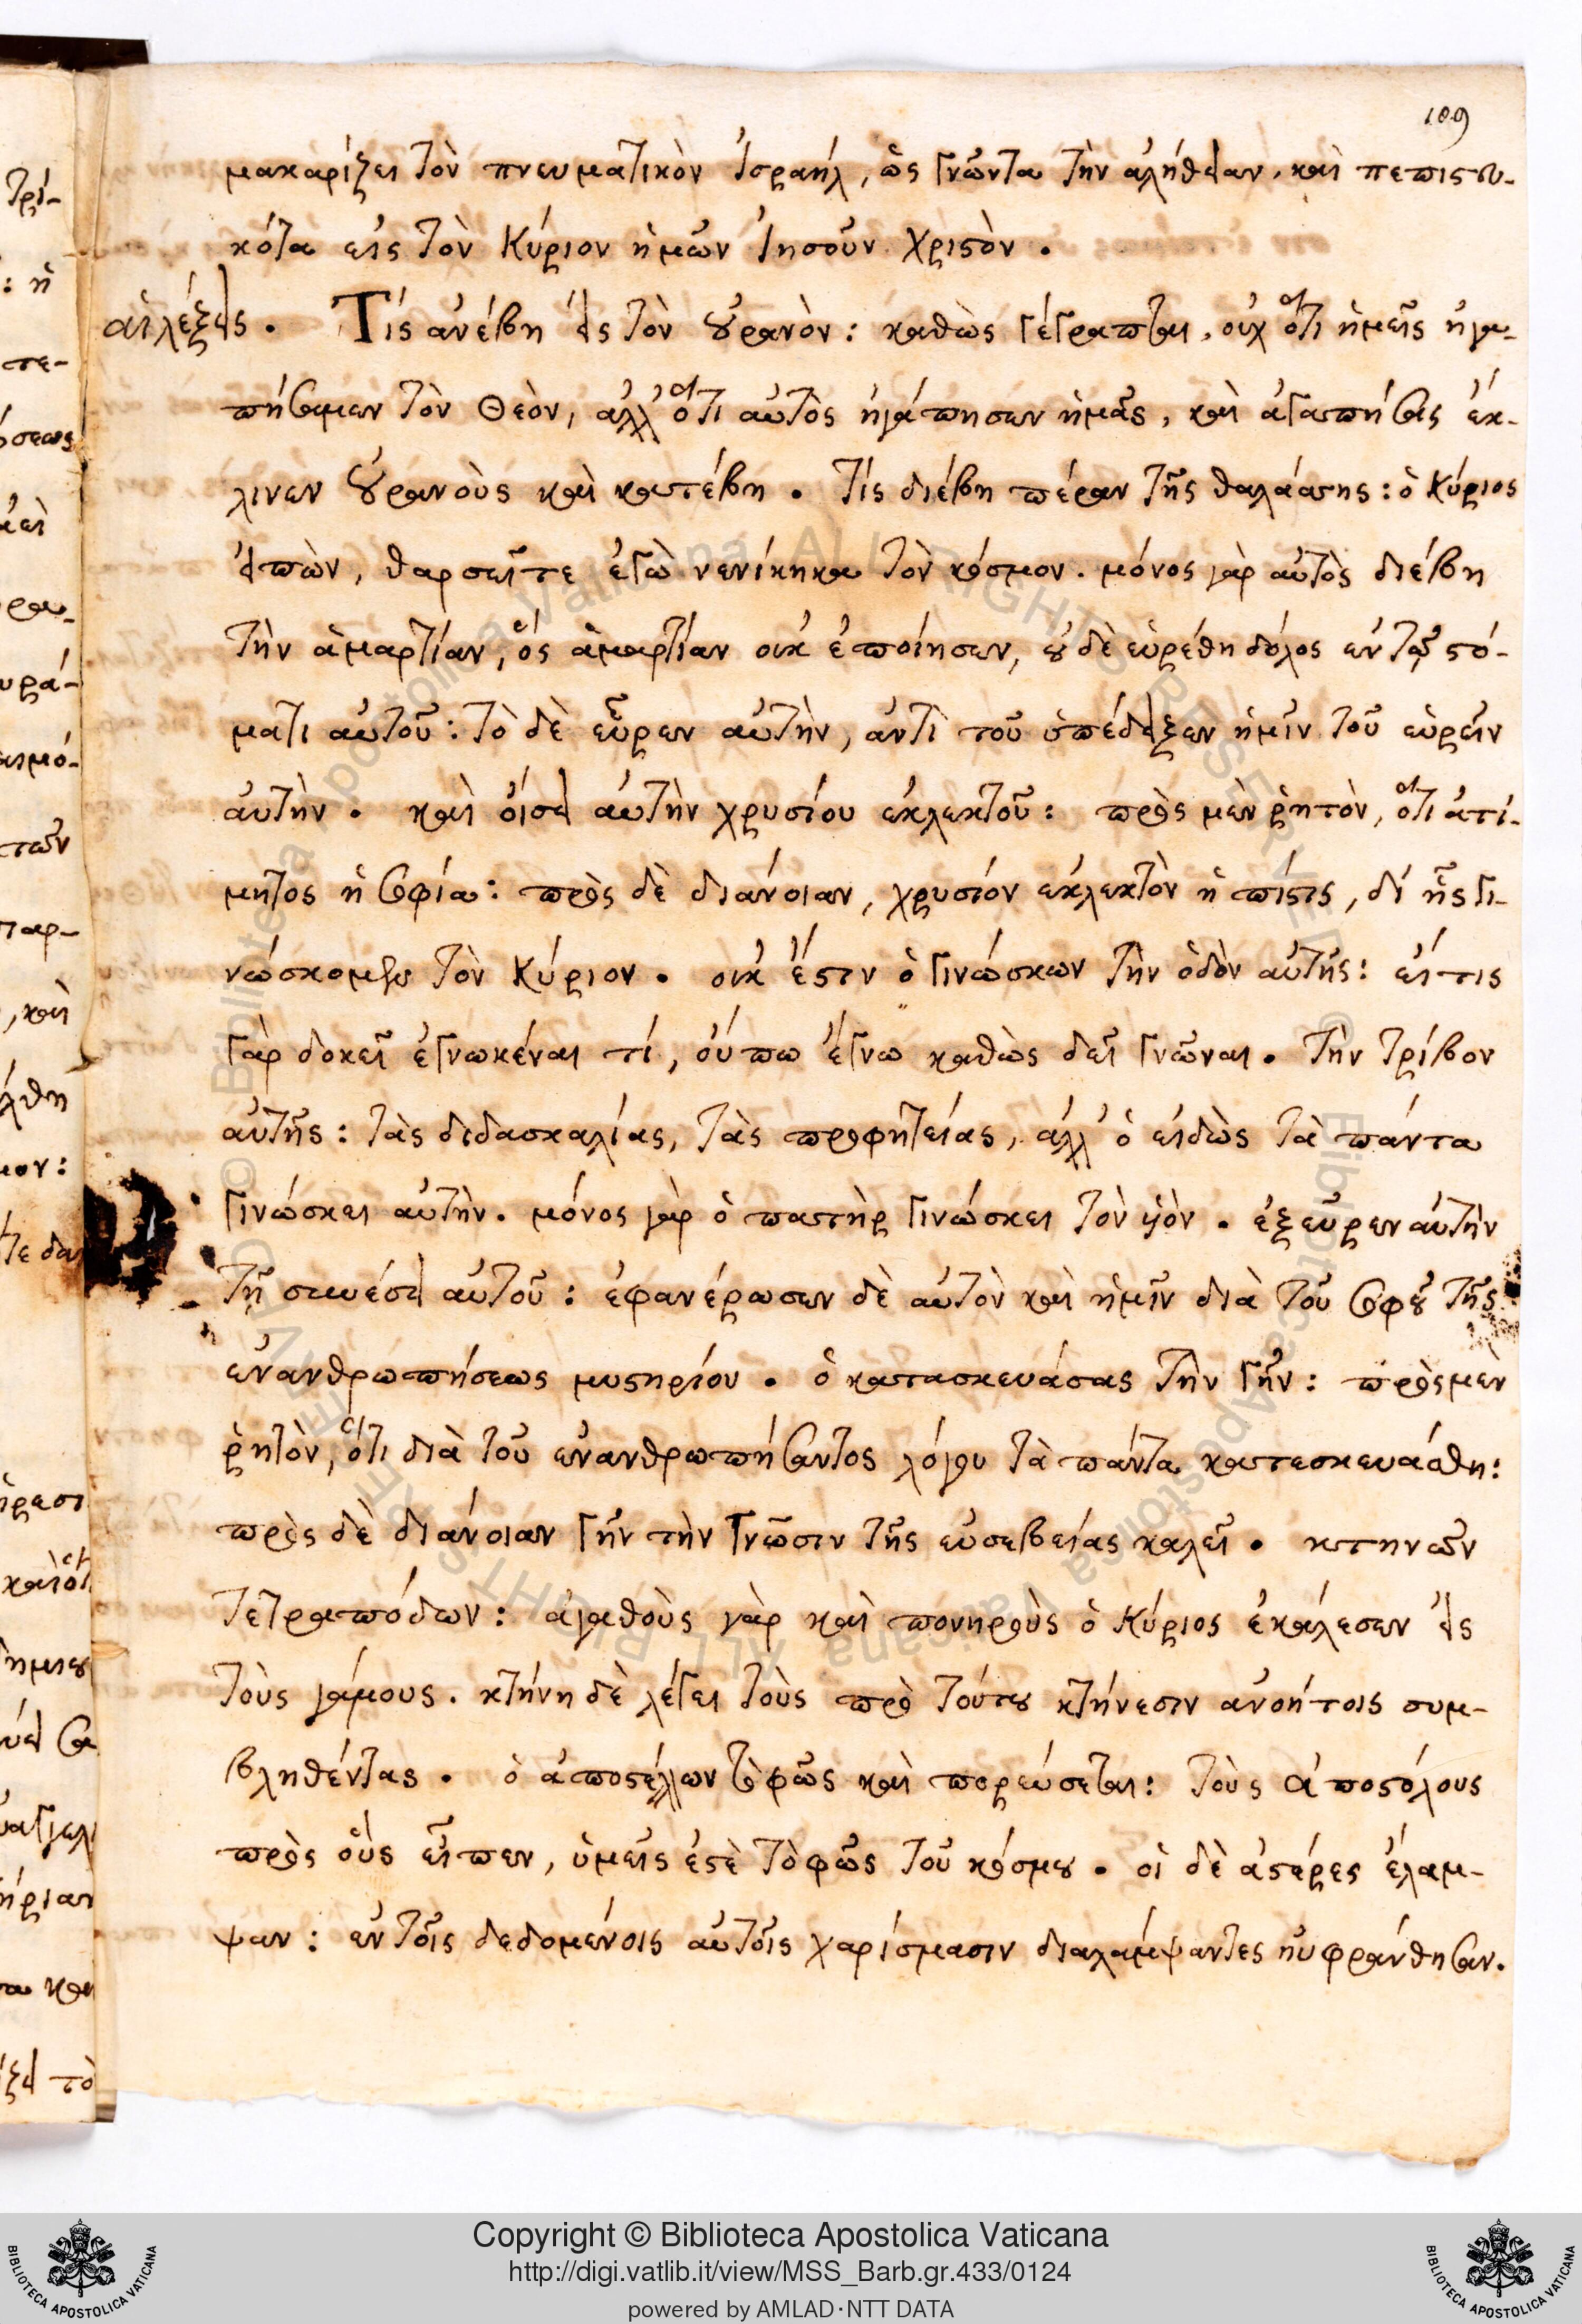 109
μακαρίζει τὸν πνευματικὸν Ἰσραήλ, ὡς γνῶντα τὴν ἀλήθειαν, καὶ πεπιστευ-
κότα εἰς τὸν Κύριον ἡμῶν Ἰησοῦν Χριστὸν.
αἱ λέξεις. Τίς ἀνέβη εἰς τὸν οὐρανὸν: καθὼς γέγραπται, οὐχ ὅτι ἡμεῖς ἠγα-
πήσαμεν τὸν Θεὸν, ἀλλ' ὅτι αὐτὸς ἠγάπησεν ἡμᾶς, καὶ ἀγαπήσας ἔκ-
λινεν οὐρανοὺς καὶ κατέβη. τίς διέβη πέραν τῆς θαλάσσης: ὁ Κύριος
εἰπὼν, θαρσεῖτε ἐγὼ νενίκηκα τὸν κόσμον. μόνος γὰρ αὐτὸς διέβη
τὴν ἁμαρτίαν, ὅς ἁμαρτίαν οὐκ ἐποίησεν, οὐδὲ εὑρέθη δόλος ἐν τῷ στό-
ματι αὐτοῦ: τὸ δὲ εὗρεν αὐτὴν, ἀντὶ τοῦ ὑπέδειξεν ἡμῖν τοῦ εὑρεῖν
αὐτὴν. καὶ οἴσει αὐτὴν χρυσίου ἐκλεκτοῦ: πρὸς μὲν ῥητὸν, ὅτι ἀτί-
μητος ἡ σοφία: πρὸς δὲ διάνοιαν, χρυσίον ἐκλεκτὸν ἡ πίστις, δι' ἧς γι-
νώσκομεν τὸν Κύριον. οὐκ ἔστιν ὁ γινώσκων τὴν ὁδὸν αὐτῆς: εἴτις
γὰρ δοκεῖ ἐγνωκέναι τί, οὔπω ἔγνω καθὼς δεῖ γνῶναι. τὴν τρίβον
αὐτῆς: τὰς διδασκαλίας, τὰς προφητείας, ἀλλ' ὁ εἰδὼς τὰ πάντα
γινώσκει αὐτὴν. μόνος γὰρ ὁ πατὴρ γινώσκει τὸν υἱὸν. ἐξεῦρεν αὐτὴν
τῇ συνέσει αὐτοῦ: ἐφανέρωσεν δὲ αὐτὸν καὶ ἡμῖν διὰ τοῦ σοφοῦ τῆς
ἐνανθρωπήσεως μυστηρίου. ὁ κατασκευάσας τὴν γῆν: πρὸς μὲν
ῥητὸν, ὅτι διὰ τοῦ ἐνανθρωπήσαντος λόγου τὰ πάντα κατεσκευάσθη:
πρὸς δὲ διάνοιαν γῆν τὴν γνῶσιν τῆς εὐσεβείας καλεῖ. κτηνῶν
τετραπόδων: ἀγαθοὺς γὰρ καὶ πονηροὺς ὁ Κύριος ἐκάλεσεν εἰς
τοὺς γάμους. κτήνη δὲ λέγει τοὺς πρὸ τούτου κτήνεσιν ἀνοήτοις συμ-
βληθέντας. ὁ ἀποστέλλων τὸ φῶς καὶ πορεύσεται: τοὺς ἀποστόλους
πρὸς οὓς εἶπεν, ὑμεῖς ἐστὲ τὸ φῶς τοῦ κόσμου. οἱ δὲ ἀστέρες ἔλαμ-
ψαν: ἐν τοῖς δεδομένοις αὐτοῖς χαρίσμασιν διαλάμψαντες ηὐφράνθησαν.
Copyright © Biblioteca Apostolica Vaticana
http://digi.vatlib.it/view/MSS_Barb.gr.433/0124
powered by AMLAD·NTT DATA